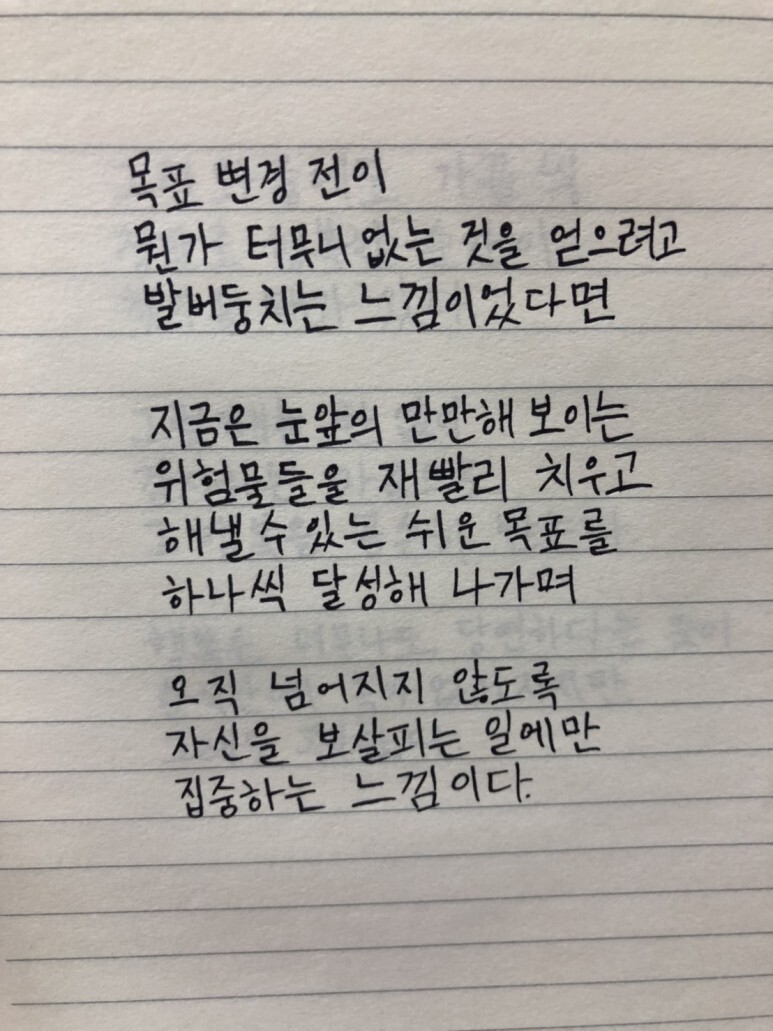 목표 변경 전이
뭔가 터무니없는 것을 얻으려고
발버둥치는 느낌이었다면
지금은 눈앞의 만만해 보이는
위험물들을 재빨리 치우고
해낼 수 있는 쉬운 목표를
하나씩 달성해 나가며
오직 넘어지지 않도록
자신을 보살피는 일에만
집중하는 느낌이다.